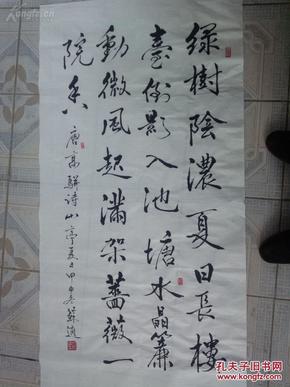 绿樹陰濃夏日長樓
臺倒影入池塘水晶簾
動微風起滿架薔薇一
院香
唐高駢詩山亭夏日甲午冬